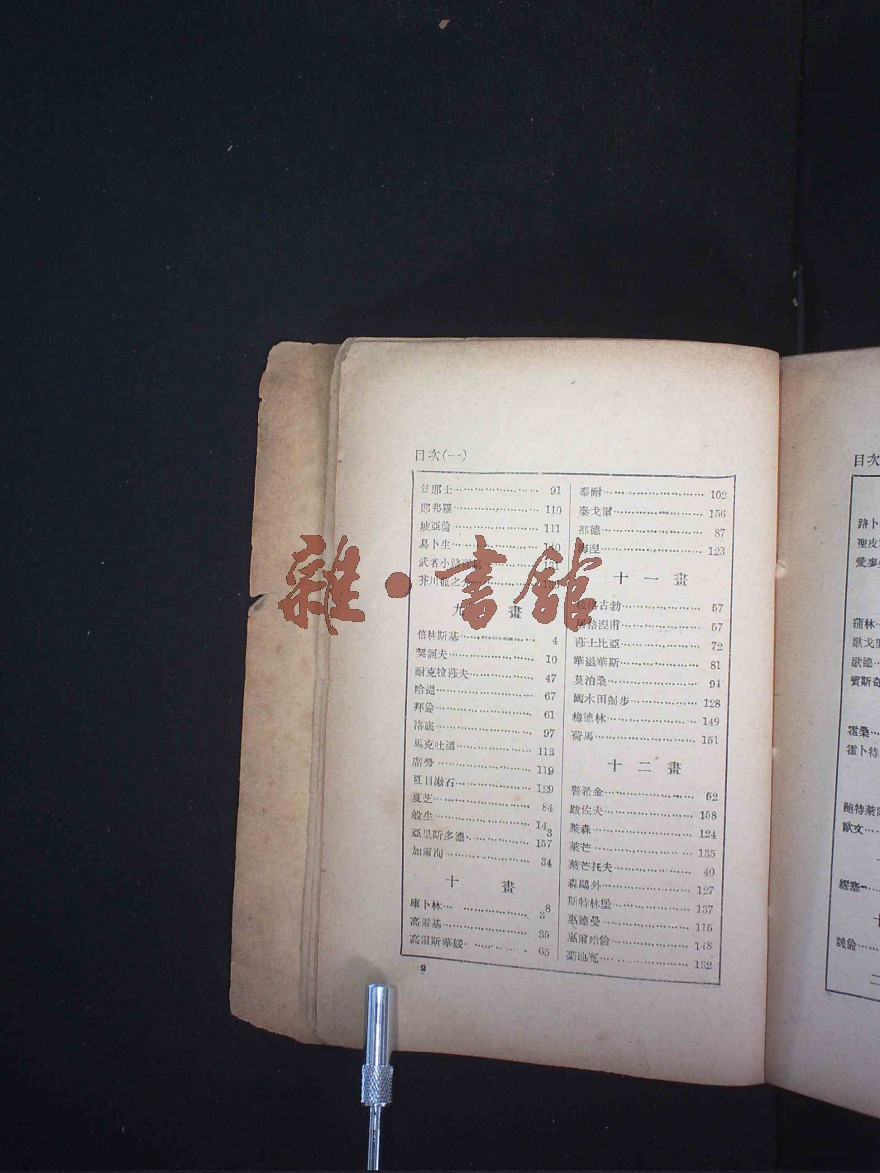 目次(一)
甘耶夫……91
耶弗羅……110
坡亞倫……111
易卜生……140
武者小路
芥川龍之
九　畫
倍林斯基……4
契訶夫……10
耐克拉莎夫……47
哈提……67
拜倫……61
洛底……97
馬克吐溫……113
席勞……119
夏目漱石……129
夏芝……84
般生……143
亞里斯多德……157
加爾洵……34
十　畫
庫卜林……8
高爾基……35
高爾斯華綏……65
2
泰耐……102
泰戈爾……156
都德……87
海涅……123
十一畫
57
屠格涅甫……57
莎士比亞……72
華滋華斯……81
莫泊桑……94
國木田獨步……128
梅德林……149
荷馬……151
十二畫
普希金……52
跋佐夫……158
萊森……124
萊芒……135
萊芒托夫……40
森鷗外……127
斯特林堡……137
惠德曼……115
惠爾哈倫……148
菊池寬……132
目次
路卜
聖皮
愛麥
蒲林
歌戈里
歌德
賓斯奇
霍桑
霍卜特
鮑特萊
歐文
繆塞
魏倫
雜·書館